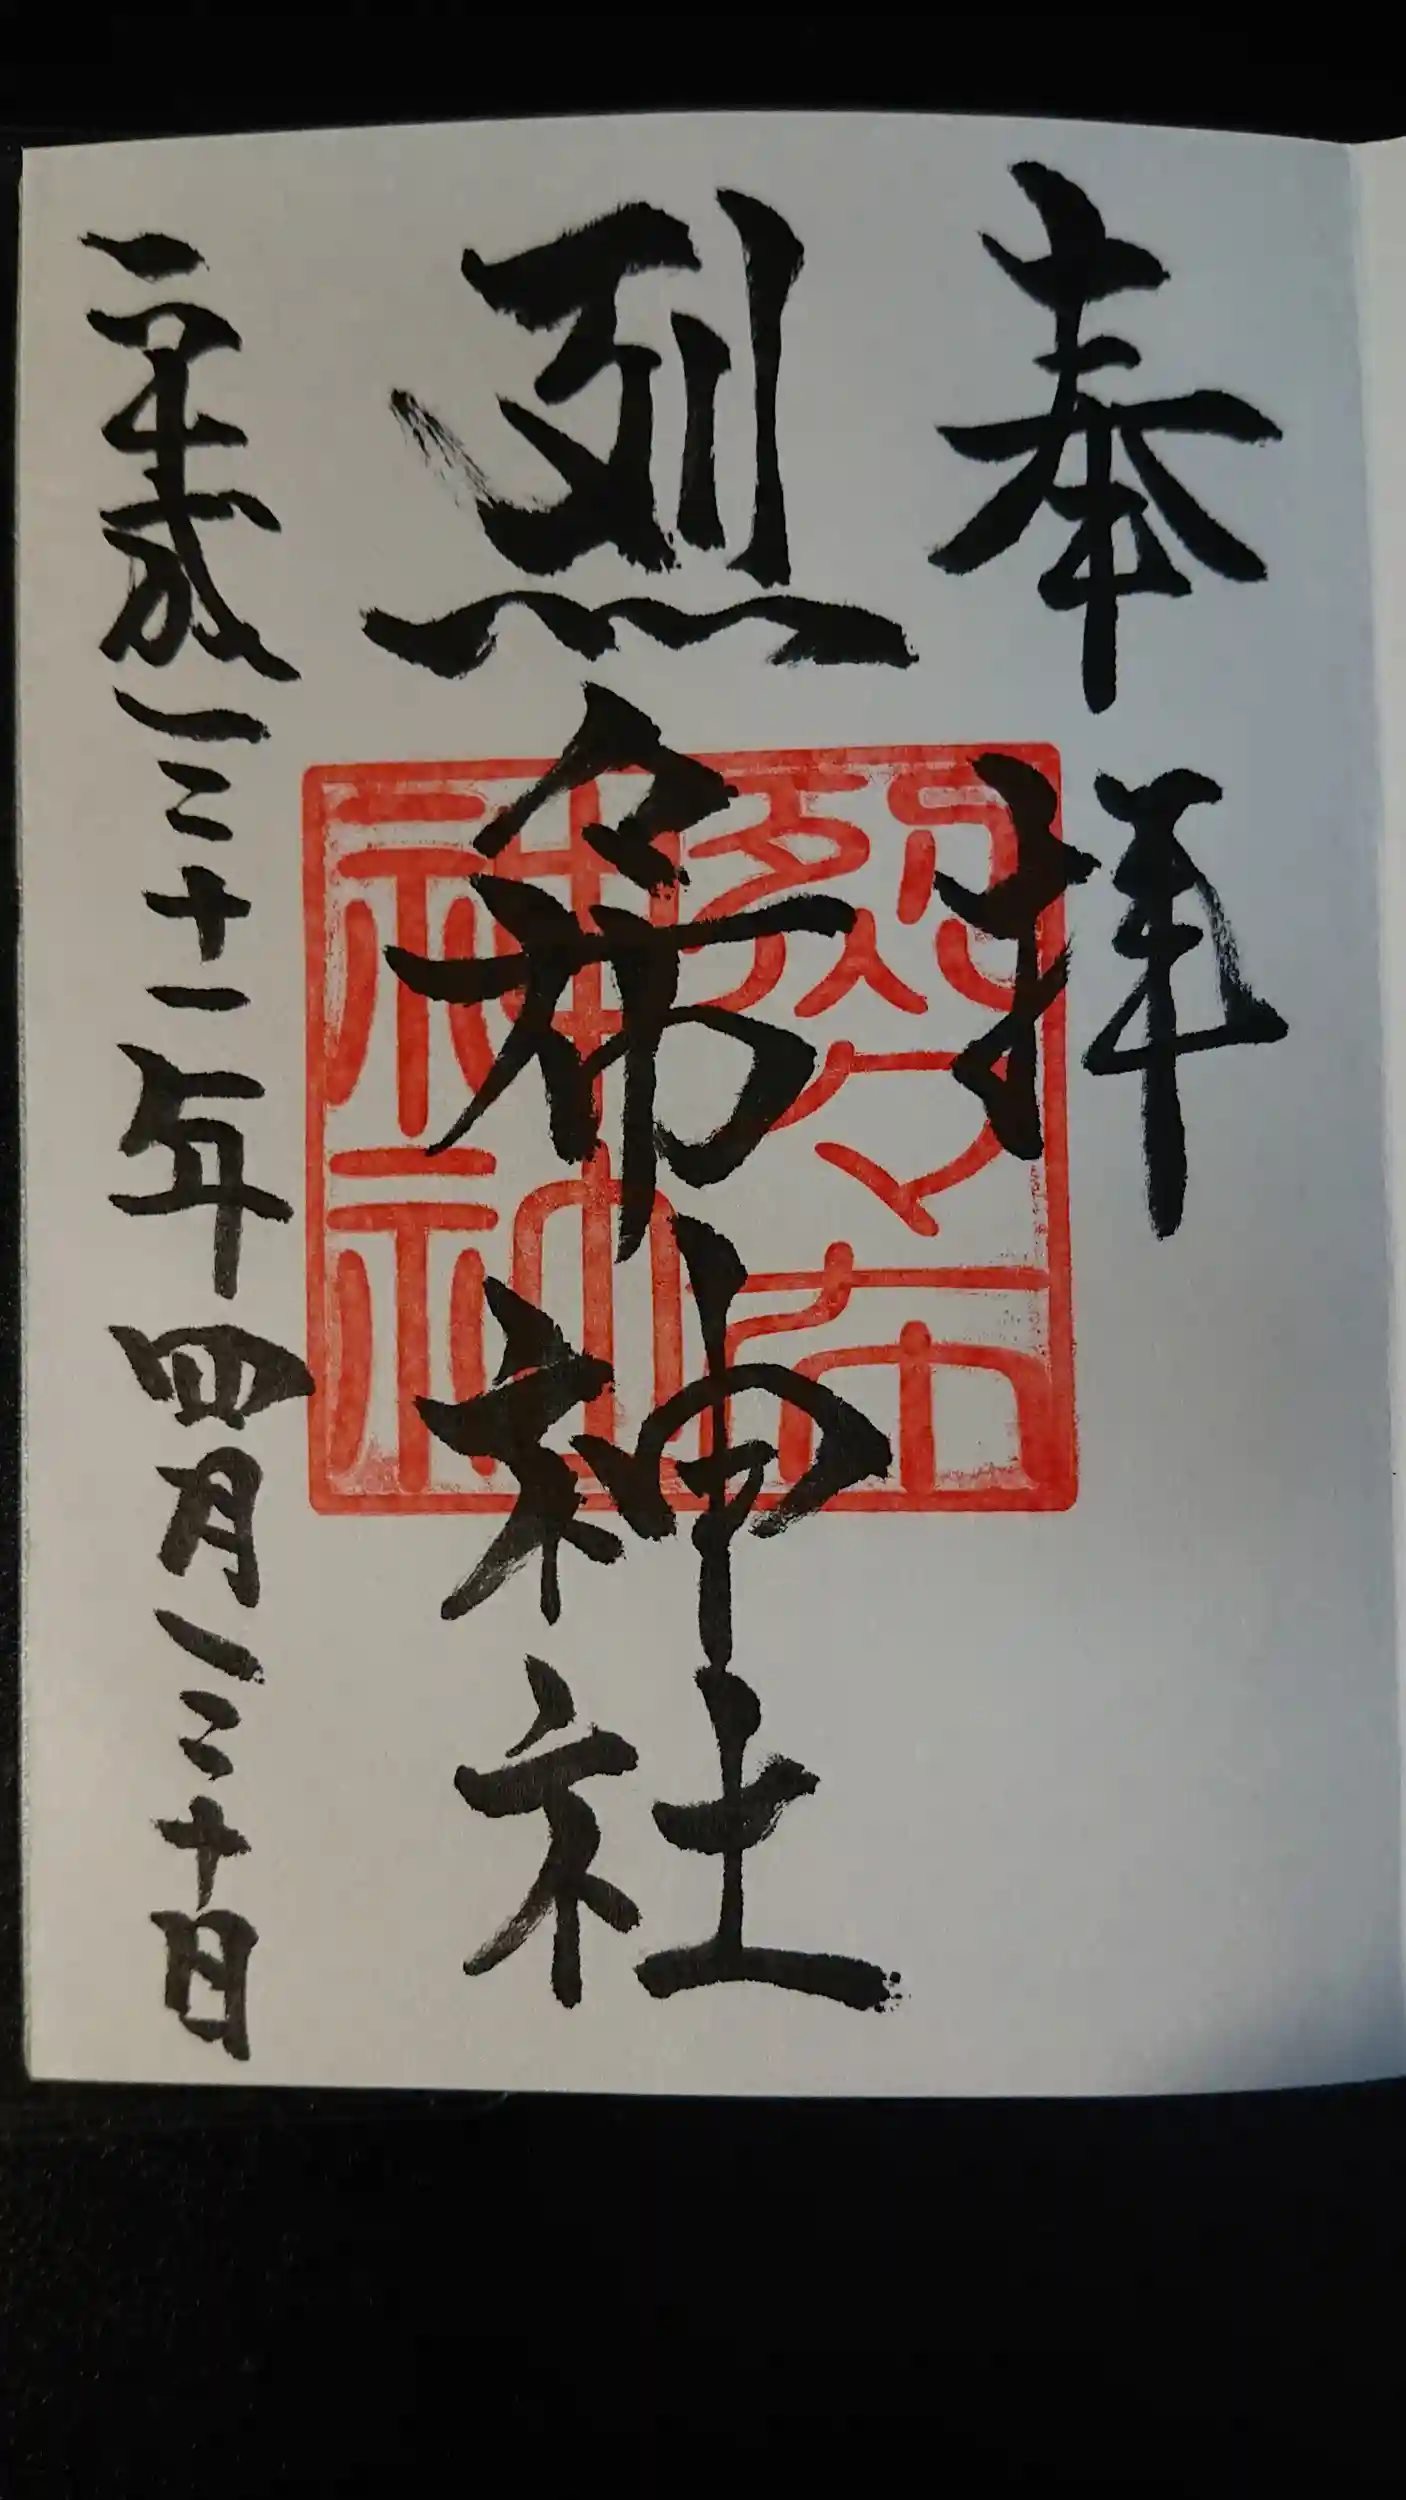 奉拝
烈々布神社
平成三十一年四月三十日
烈々布
神社